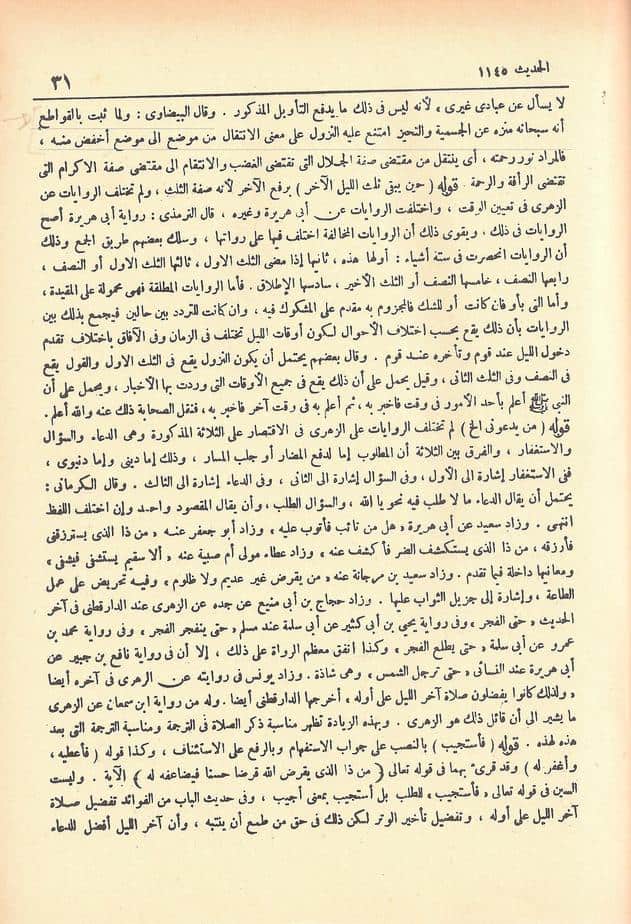 الحديث ١١٤٥
٣١
لا يسأل عن عبادى غيرى ، لأنه ليس فى ذلك ما يدفع التأويل المذكور . وقال البيضاوى : ولما ثبت بالقواطع
أنه سبحانه منزه عن الجسمية والتحيز امتنع عليه النزول على معنى الانتقال من موضع الى موضع أخفض منه ،
فالمراد نور رحمته ، أى ينتقل من مقتضى صفة الجلال التى تقتضى الغضب والانتقام الى مقتضى صفة الاكرام التى
تقتضى الرأفة والرحمة . قوله ( حين يبقى ثلث الليل الآخر ) برفع الآخر لأنه صفة الثلث ، ولم تختلف الروايات عن
الزهرى فى تعيين الوقت ، واختلفت الروايات عن أبى هريرة وغيره ، قال الترمذى : رواية أبى هريرة أصح
الروايات فى ذلك . ويقوى ذلك أن الروايات المخالفة اختلف فيها على رواتها ، وسلك بعضهم طريق الجمع وذلك
أن الروايات انحصرت فى ستة أشياء : أولها هذه ، ثانيها إذا مضى الثلث الاول ، ثالثها الثلث الاول أو النصف ،
رابعها النصف ، خامسها النصف أو الثلث الأخير ، سادسها الإطلاق . فأما الروايات المطلقة فهى محمولة على المقيدة ،
وأما التى بأو فان كانت أو للشك فالمجزوم به مقدم على المشكوك فيه ، وان كانت للتردد بين حالين فيجمع بذلك بين
الروايات بأن ذلك يقع بحسب اختلاف الأحوال لكون أوقات الليل تختلف فى الزمان وفى الآفاق باختلاف تقدم
دخول الليل عند قوم وتأخره عند قوم . وقال بعضهم يحتمل أن يكون النزول يقع فى الثلث الاول والقول يقع
فى النصف وفى الثلث الثانى ، وقيل يحمل على أن ذلك يقع فى جميع الأوقات التى وردت بها الأخبار ، ويحمل على أن
النبى ﷺ أعلم بأحد الأمور فى وقت فاخبر به ، ثم أعلم به فى وقت آخر فاخبر به ، فنقل الصحابة ذلك عنه والله أعلم .
قوله ( من يدعونى الخ ) لم تختلف الروايات على الزهرى فى الاقتصار على الثلاثة المذكورة وهى الدعاء والسؤال
والاستغفار ، والفرق بين الثلاثة أن المطلوب إما لدفع المضار أو جلب المسار ، وذلك إما دينى وإما دنيوى ،
ففى الاستغفار إشارة الى الأول ، وفى السؤال إشارة الى الثانى ، وفى الدعاء إشارة الى الثالث . وقال الكرمانى :
يحتمل أن يقال الدعاء ما لا طلب فيه نحو يا الله ، والسؤال الطلب ، وأن يقال المقصود واحد وإن اختلف اللفظ
انتهى . وزاد سعيد عن أبى هريرة « هل من تائب فأتوب عليه » وزاد أبو جعفر عنه « من ذا الذى يسترزقنى
فأرزقه ، من ذا الذى يستكشف الضر فأكشف عنه » وزاد عطاء مولى أم صبية عنه « ألا سقيم يستشفى فيشفى »
ومعانيها داخلة فيما تقدم . وزاد سعيد بن مرجانة عنه « من يقرض غير عديم ولا ظلوم » وفيه تحريض على عمل
الطاعة ، وإشارة إلى جزيل الثواب عليها . وزاد حجاج بن أبى منيع عن جده عن الزهرى عند الدارقطنى فى آخر
الحديث « حتى الفجر » وفى رواية يحيى بن أبى كثير عن أبى سلمة عند مسلم « حتى ينفجر الفجر » وفى رواية محمد بن
عمرو عن أبى سلمة « حتى يطلع الفجر » وكذا اتفق معظم الرواة على ذلك ، إلا أن فى رواية نافع بن جبير عن
أبى هريرة عند النسائى « حتى ترجل الشمس » وهى شاذة . وزاد يونس فى روايته عن الزهرى فى آخره أيضا
« ولذلك كانوا يفضلون صلاة آخر الليل على أوله » أخرجها الدارقطنى أيضا . وله من رواية ابن سمعان عن الزهرى
ما يشير الى أن قائل ذلك هو الزهرى . وبهذه الزيادة تظهر مناسبة ذكر الصلاة فى الترجمة ومناسبة الترجمة التى بعد
هذه لهذه . قوله ( فأستجيب ) بالنصب على جواب الاستفهام وبالرفع على الاستئناف ، وكذا قوله ( فأعطيه ،
وأغفر له ) وقد قرئ بهما فى قوله تعالى ( من ذا الذى يقرض الله قرضا حسنا فيضاعفه له ) الآية . وليست
السين فى قوله تعالى « فأستجيب » للطلب بل أستجيب بمعنى أجيب ، وفى حديث الباب من الفوائد تفضيل صلاة
آخر الليل على أوله ، وتفضيل تأخير الوتر لكن ذلك فى حق من طمع أن ينتبه ، وأن آخر الليل أفضل للدعاء